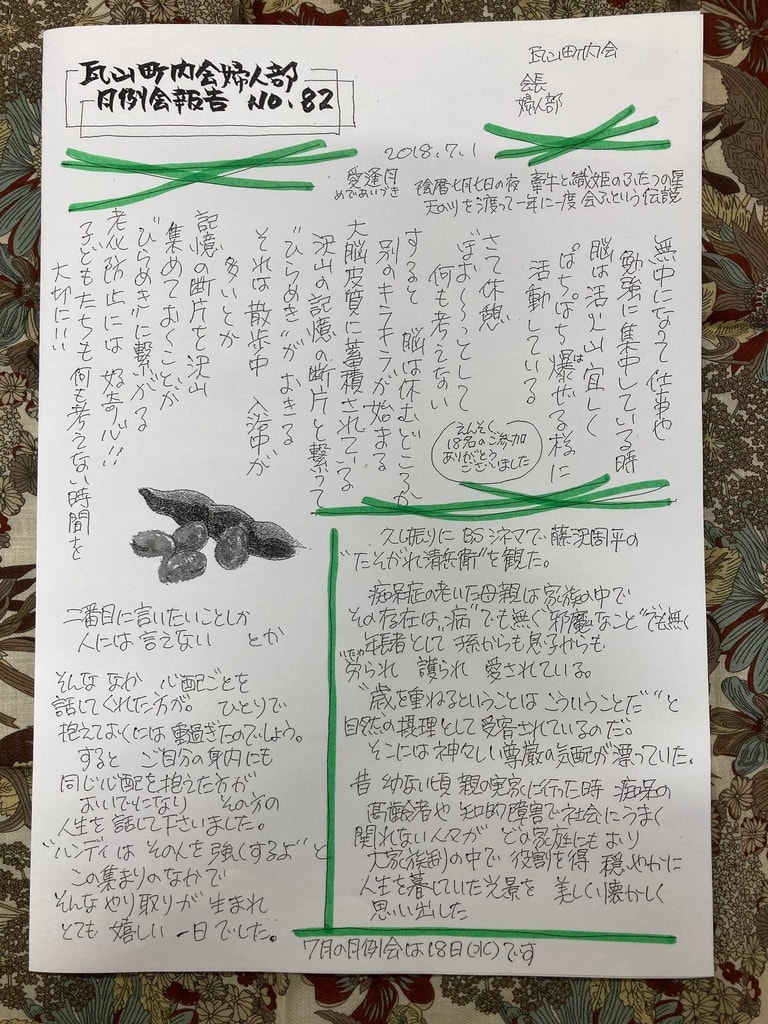 瓦山町内会婦人部
月例会報告 NO.82
瓦山町内会
会長
婦人部
2018.7.1
愛逢月
めであいづき
陰暦七月七日の夜 牽牛と織姫のふたつの星
天の川を渡って一年に一度会うという伝説
無中になって仕事や
勉強に集中している時
脳は活火山宜しく
ぱちぱち爆ぜる様に
は
活動している
さて休憩
ぼお～っとして
何も考えない
すると 脳は休むどころか
別のキラキラが始まる
大脳皮質に蓄積されている
沢山の記憶の断片と繋って
"ひらめき"がおきる
それは 散歩中 入浴中が
多いとか
記憶の断片を沢山
集めておくことが
"ひらめき"に繋がる
老化防止には好奇心!!
子どもたちも何も考えない時間を
大切に!!
えんそく
18名のご参加
ありがとう
ございました
久し振りに BSシネマで 藤沢周平の
"たそがれ清兵衛"を観た。
痴呆症の老いた母親は家族の中で
その存在は"病"でも無く"邪魔なこと"でも無く
年長者として 孫からも息子からも
いたわ
労られ 護られ 愛されている。
"歳を重ねるということは こういうことだ"と
自然の摂理として受容されているのだ。
そこには神々しい尊厳の気配が漂っていた。
昔 幼ない頃 親の実家に行った時 痴呆の
高齢者や 知的障害で社会にうまく
関れない人々が どの家庭にもおり
大家族制の中で 役割を得 穏やかに
人生を暮していた光景を 美しく懐かしく
思い出した
二番目に言いたいことしか
人には言えない とか
そんな なか 心配ごとを
話してくれた方が。 ひとりで
抱えておくには重過ぎたのでしょう。
すると ご自分の身内にも
同じ心配を抱えた方が
おいでになり その方の
人生を話して下さいました。
"ハンディは その人を強くするよ"と
この集まりのなかで
そんなやり取りが生まれ
とても 嬉しい 一日でした。
7月の月例会は18日(水)です